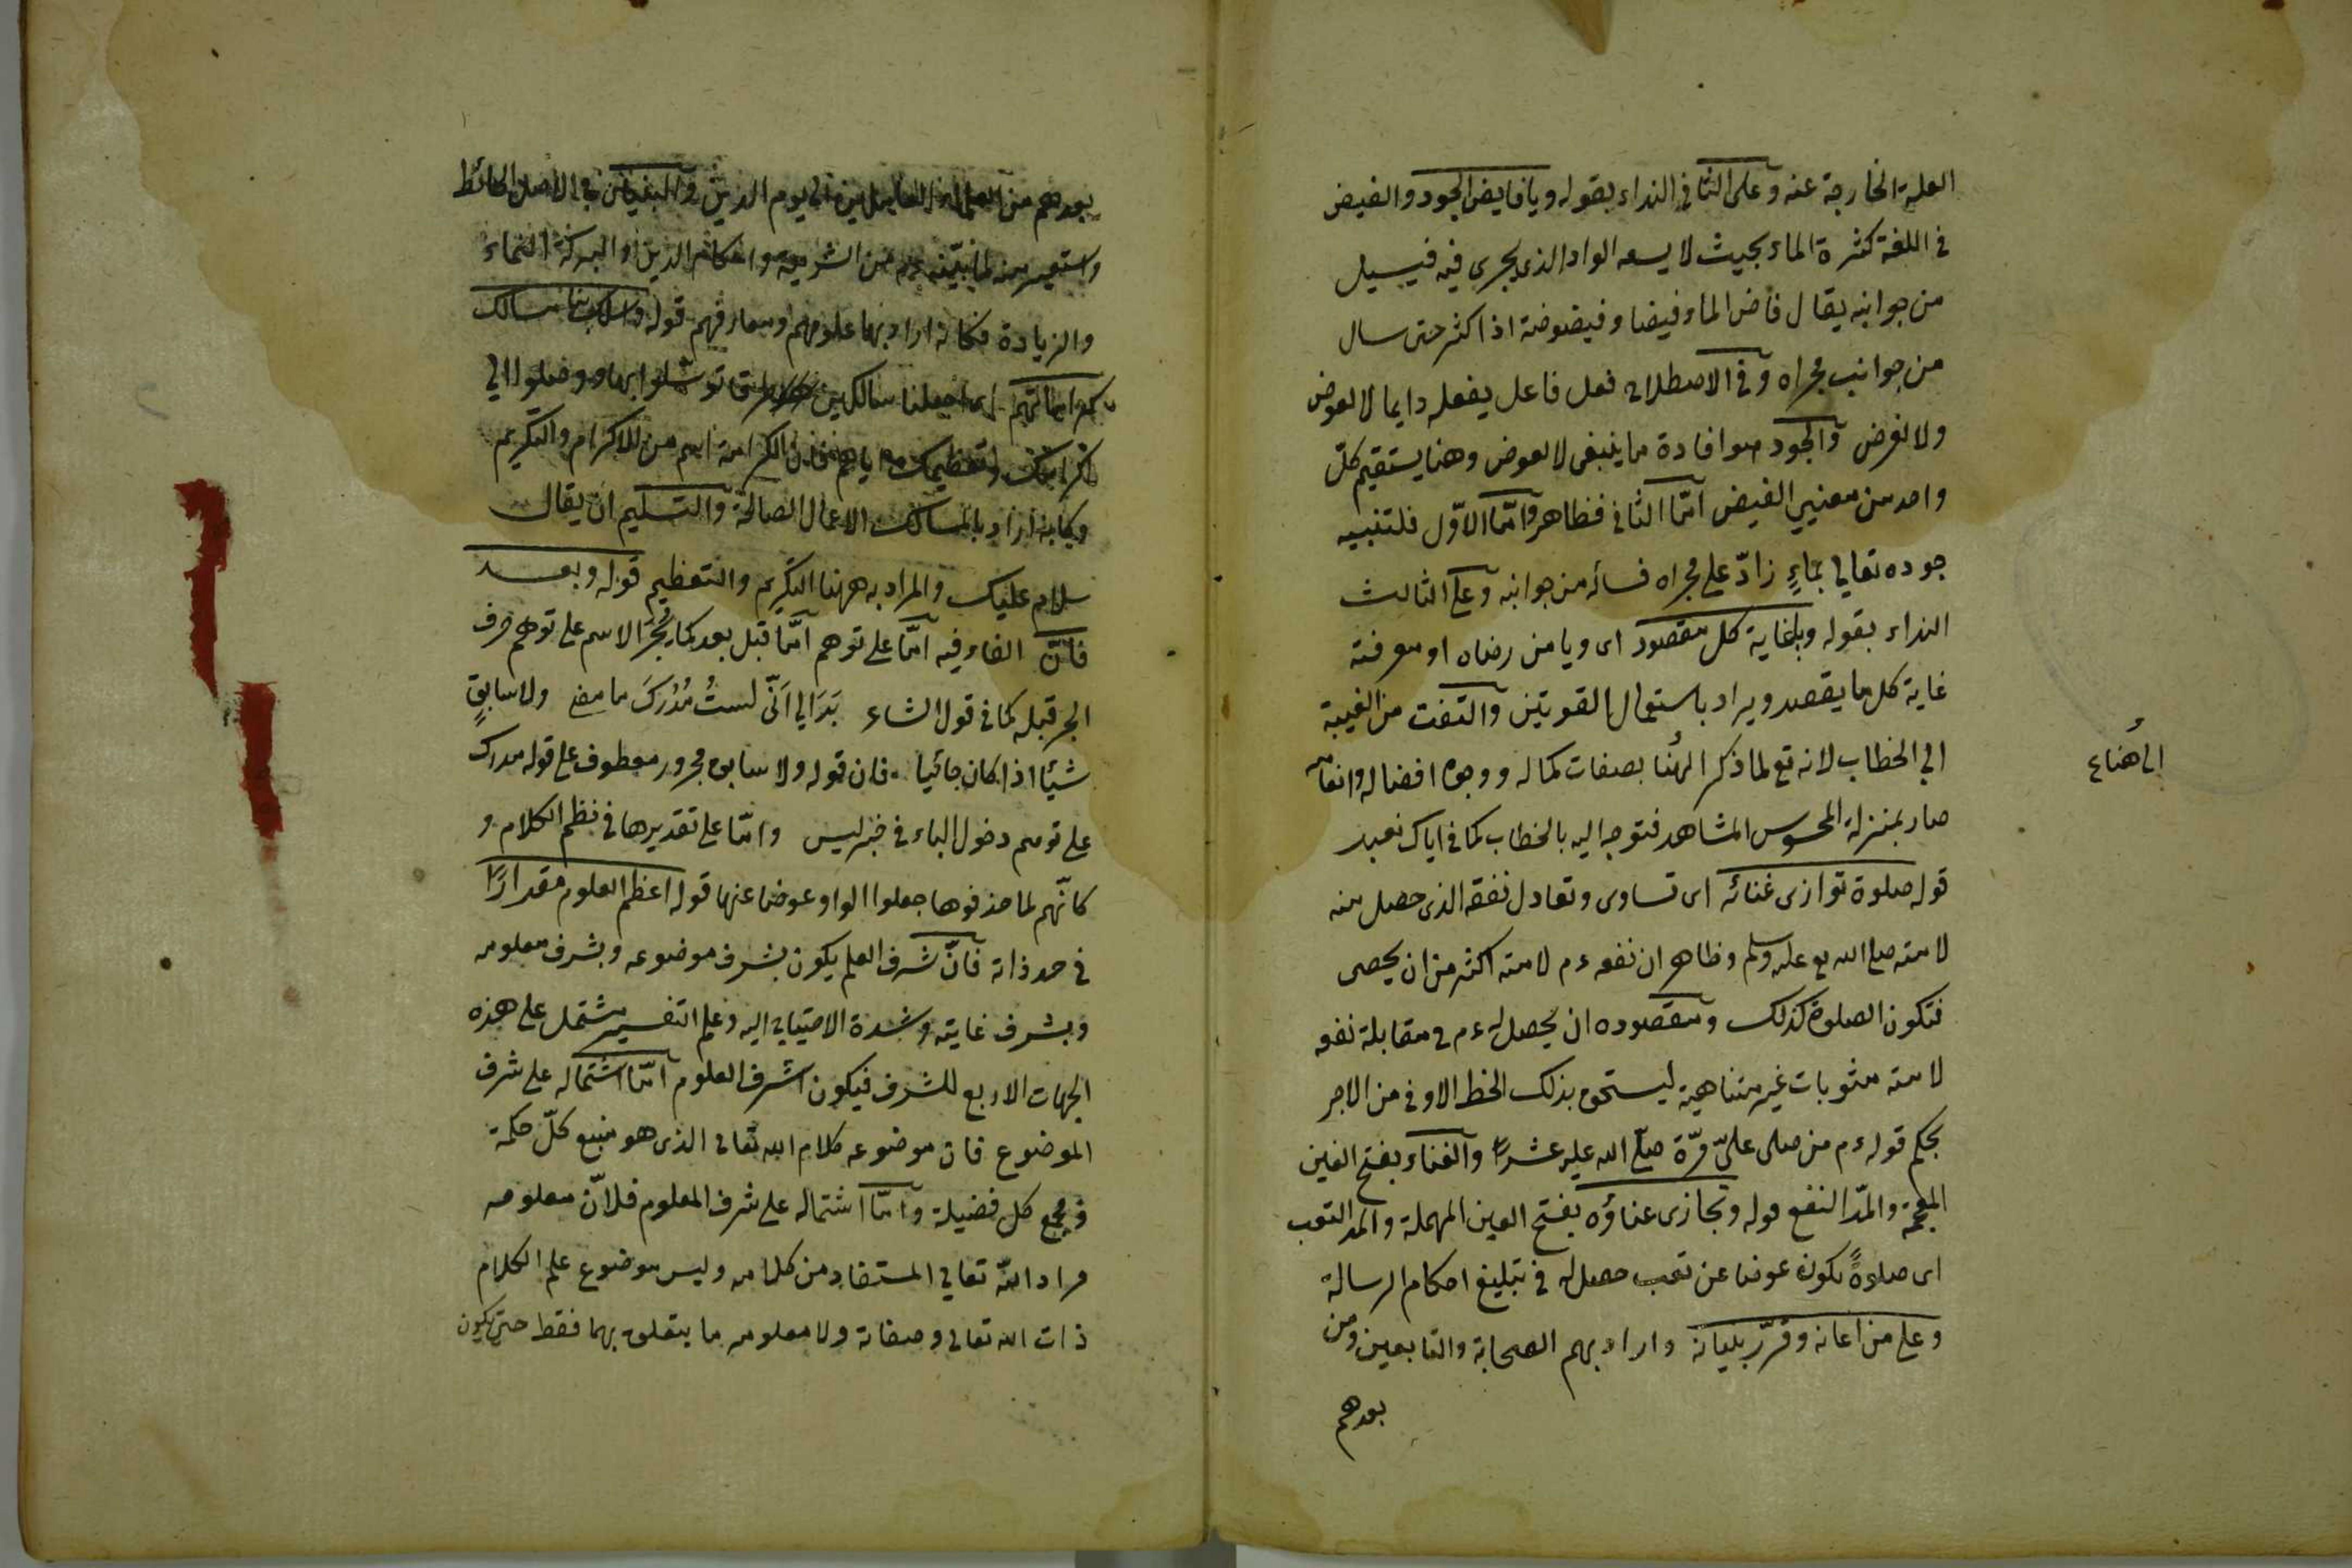 العلة الخارجة عنه وعلى الثاني النداء بقوله ويا فايض الجود والفيض
في اللغة كثرة الماء بحيث لا يسعه الواد الذي يجري فيه فيسيل
من جوانبه يقال فاض الماء فيضا وفيضوضة اذا كثر حتى سال
من جوانب مجراه وفي الاصطلاح فعل فاعل يفعله دايما لا لعوض
ولا لغرض والجود هو افادة ما ينبغي لا لعوض وهنا يستقيم كلّ
واحد من معنيي الفيض امّا الثاني فظاهر وامّا الاوّل فلتشبيه
جوده تعالى بماءٍ زادّ على مجراه فسال من جوانبه وعلى الثالث
النداء بقوله ويا غاية كل مقصود اى ويا من رضاه او معرفته
غاية كل ما يقصد ويراد باستعمال القوتين والتفت من الغيبة
الى الخطاب لانه تع لما ذكر الهُنا بصفات كماله ووجوه افضاله وانعامه
صار بمنزلة المحسوس المشاهد فتوجه اليه بالخطاب كما في اياك نعبد
قوله صلوة توازى غنائه اى تساوى وتعادل نفعه الذى حصل منه
لامته صلى الله تع عليه وسلم وظاهر ان نفعه ءم لامته اكثر من ان يحصى
فتكون الصلوة كذلك ومقصوده ان يحصل له ءم في مقابلة نفعه
لامته مثوبات غير متناهية ليستحق بذلك الحظ الاوفى من الاجر
بحكم قوله ءم من صلى علىّ مرّة صلّى الله عليه عشرًا والغناء بفتح الغين
المعجمة والمدّ النفع قوله وتجازى عناؤه بفتح العين المهملة والمد التعب
اى صلوةً تكون عوضا عن تعب حصل له في تبليغ احكام الرسالة
وعلى من اعانه وقرّر بليانه واراد بهم الصحابة والتابعين ومن
بعدهم
الهُنا ع
بعدهم من العلماء العاملين الى يوم الدين والبنيان في الاصل الحائط
واستعير منه لما بيّنه ءم من الشريعة واحكام الدين والبركة النماء
والزيادة فكانه اراد بها علومهم ومعارفهم قوله واسلك بنا مسالك
كراماتهم اى اجعلنا سالكين توسّلوا بها ووصلوا الى
كرامتك وتعظيمك اياهم فان الكرامة اسم من الاكرام والتكريم
وكانه اراد بالمسالك الاعمال الصالحة والتسليم ان يقال
سلام عليك والمراد به ههنا التكريم والتعظيم قوله وبعد
فانّ الفاء فيه امّا على توهم امّا قبل بعد كما يجرّ الاسم على توهم حرف
الجر قبله كما في قول الشاعر بَدَا لي اَنّى لستُ مُدْرِكَ ما مضى ولا سابقٍ
شيئًا اذا كان جائيا فان قوله ولا سابق مجرور معطوف على قوله مدرك
على توهم دخول الباء في خبر ليس وامّا على تقديرها في نظم الكلام و
كانّهم لما حذفوها جعلوا الواو عوضا عنها قوله اعظم العلوم مقدارًا
في حد ذاته فانّ شرف العلم يكون بشرف موضوعه وبشرف معلومه
وبشرف غايته وشدة الاحتياج اليه وعلم التفسير مشتمل على هذه
الجهات الاربع للشرف فيكون اشرف العلوم امّا اشتماله على شرف
الموضوع فان موضوعه كلام الله تعالى الذى هو منبع كلّ حكمة
ومجمع كل فضيلة وامّا اشتماله على شرف المعلوم فلانّ معلومه
مراد اللّه تعالى المستفاد من كلامه وليس موضوع علم الكلام
ذات الله تعالى وصفاته ولا معلومه ما يتعلق بهما فقط حتى يكون